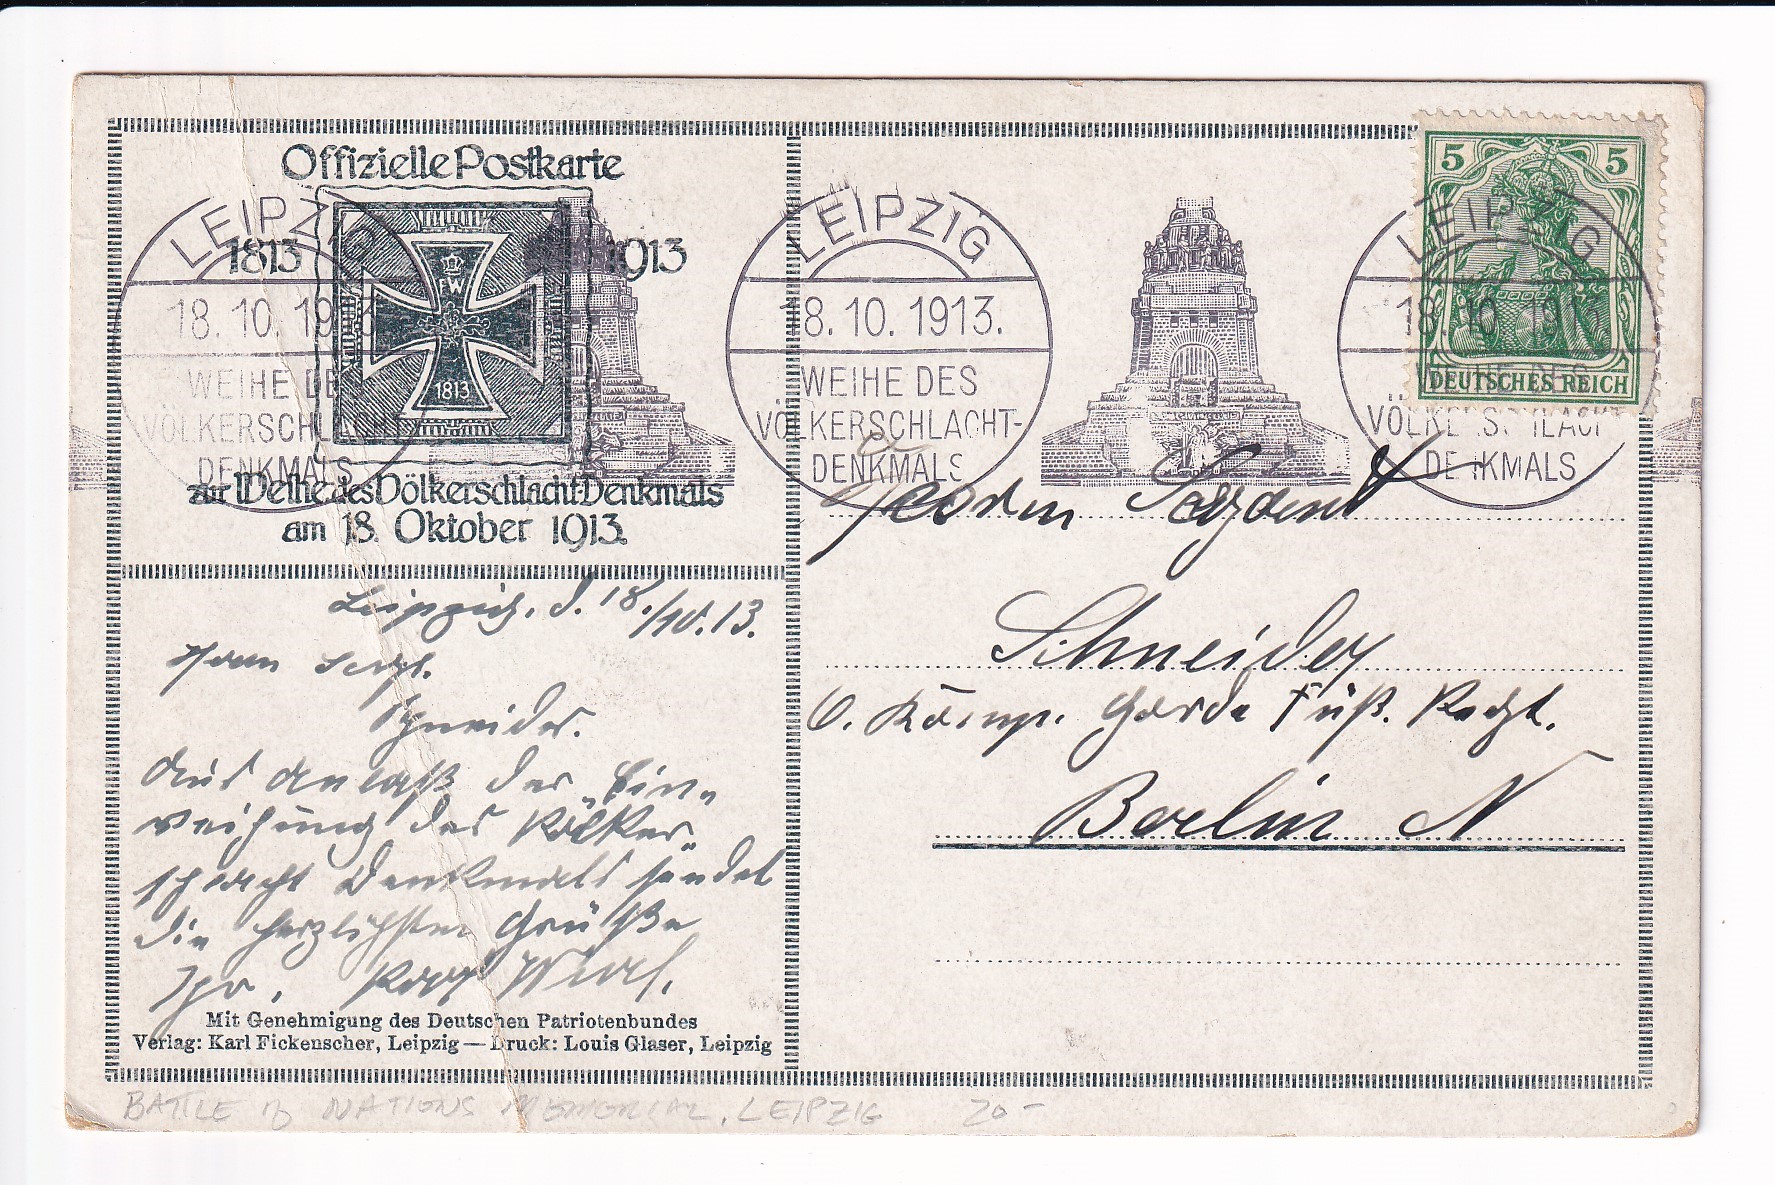 Offizielle Postkarte
1813 1913
FW
1813
zur Weihe des Völkerschlacht-Denkmals
am 18. Oktober 1913.
LEIPZIG
18.10.1913
WEIHE DES
VÖLKERSCHLACHT-
DENKMALS
LEIPZIG
18.10.1913.
WEIHE DES
VÖLKERSCHLACHT-
DENKMALS
LEIPZIG
18.10.1913
WEIHE DES
VÖLKERSCHLACHT
DENKMALS
5 5
DEUTSCHES REICH
Leipzig, d. 18./10.13.
Herrn Sergt.
Schneider.
Aus Anlaß der Ein-
weihung des Völker-
schlacht Denkmals sendet
die herzlichsten Grüße
Ihr.
Mit Genehmigung des Deutschen Patriotenbundes
Verlag: Karl Fickenscher, Leipzig — Druck: Louis Glaser, Leipzig
Herrn
Schneider
6. Komp. Garde Füß. Regt.
Berlin N
BATTLE of NATIONS MEMORIAL, LEIPZIG 20-